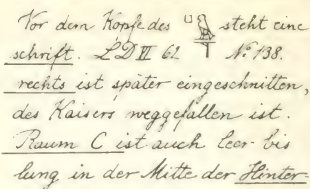 Vor dem Kopfe des steht eine
schrift. LD VI 61 No 138.
rechts ist später eingeschnitten,
des Kaisers weggefallen ist.
Raum C ist auch leer bis
lung in der Mitte der Hinter-